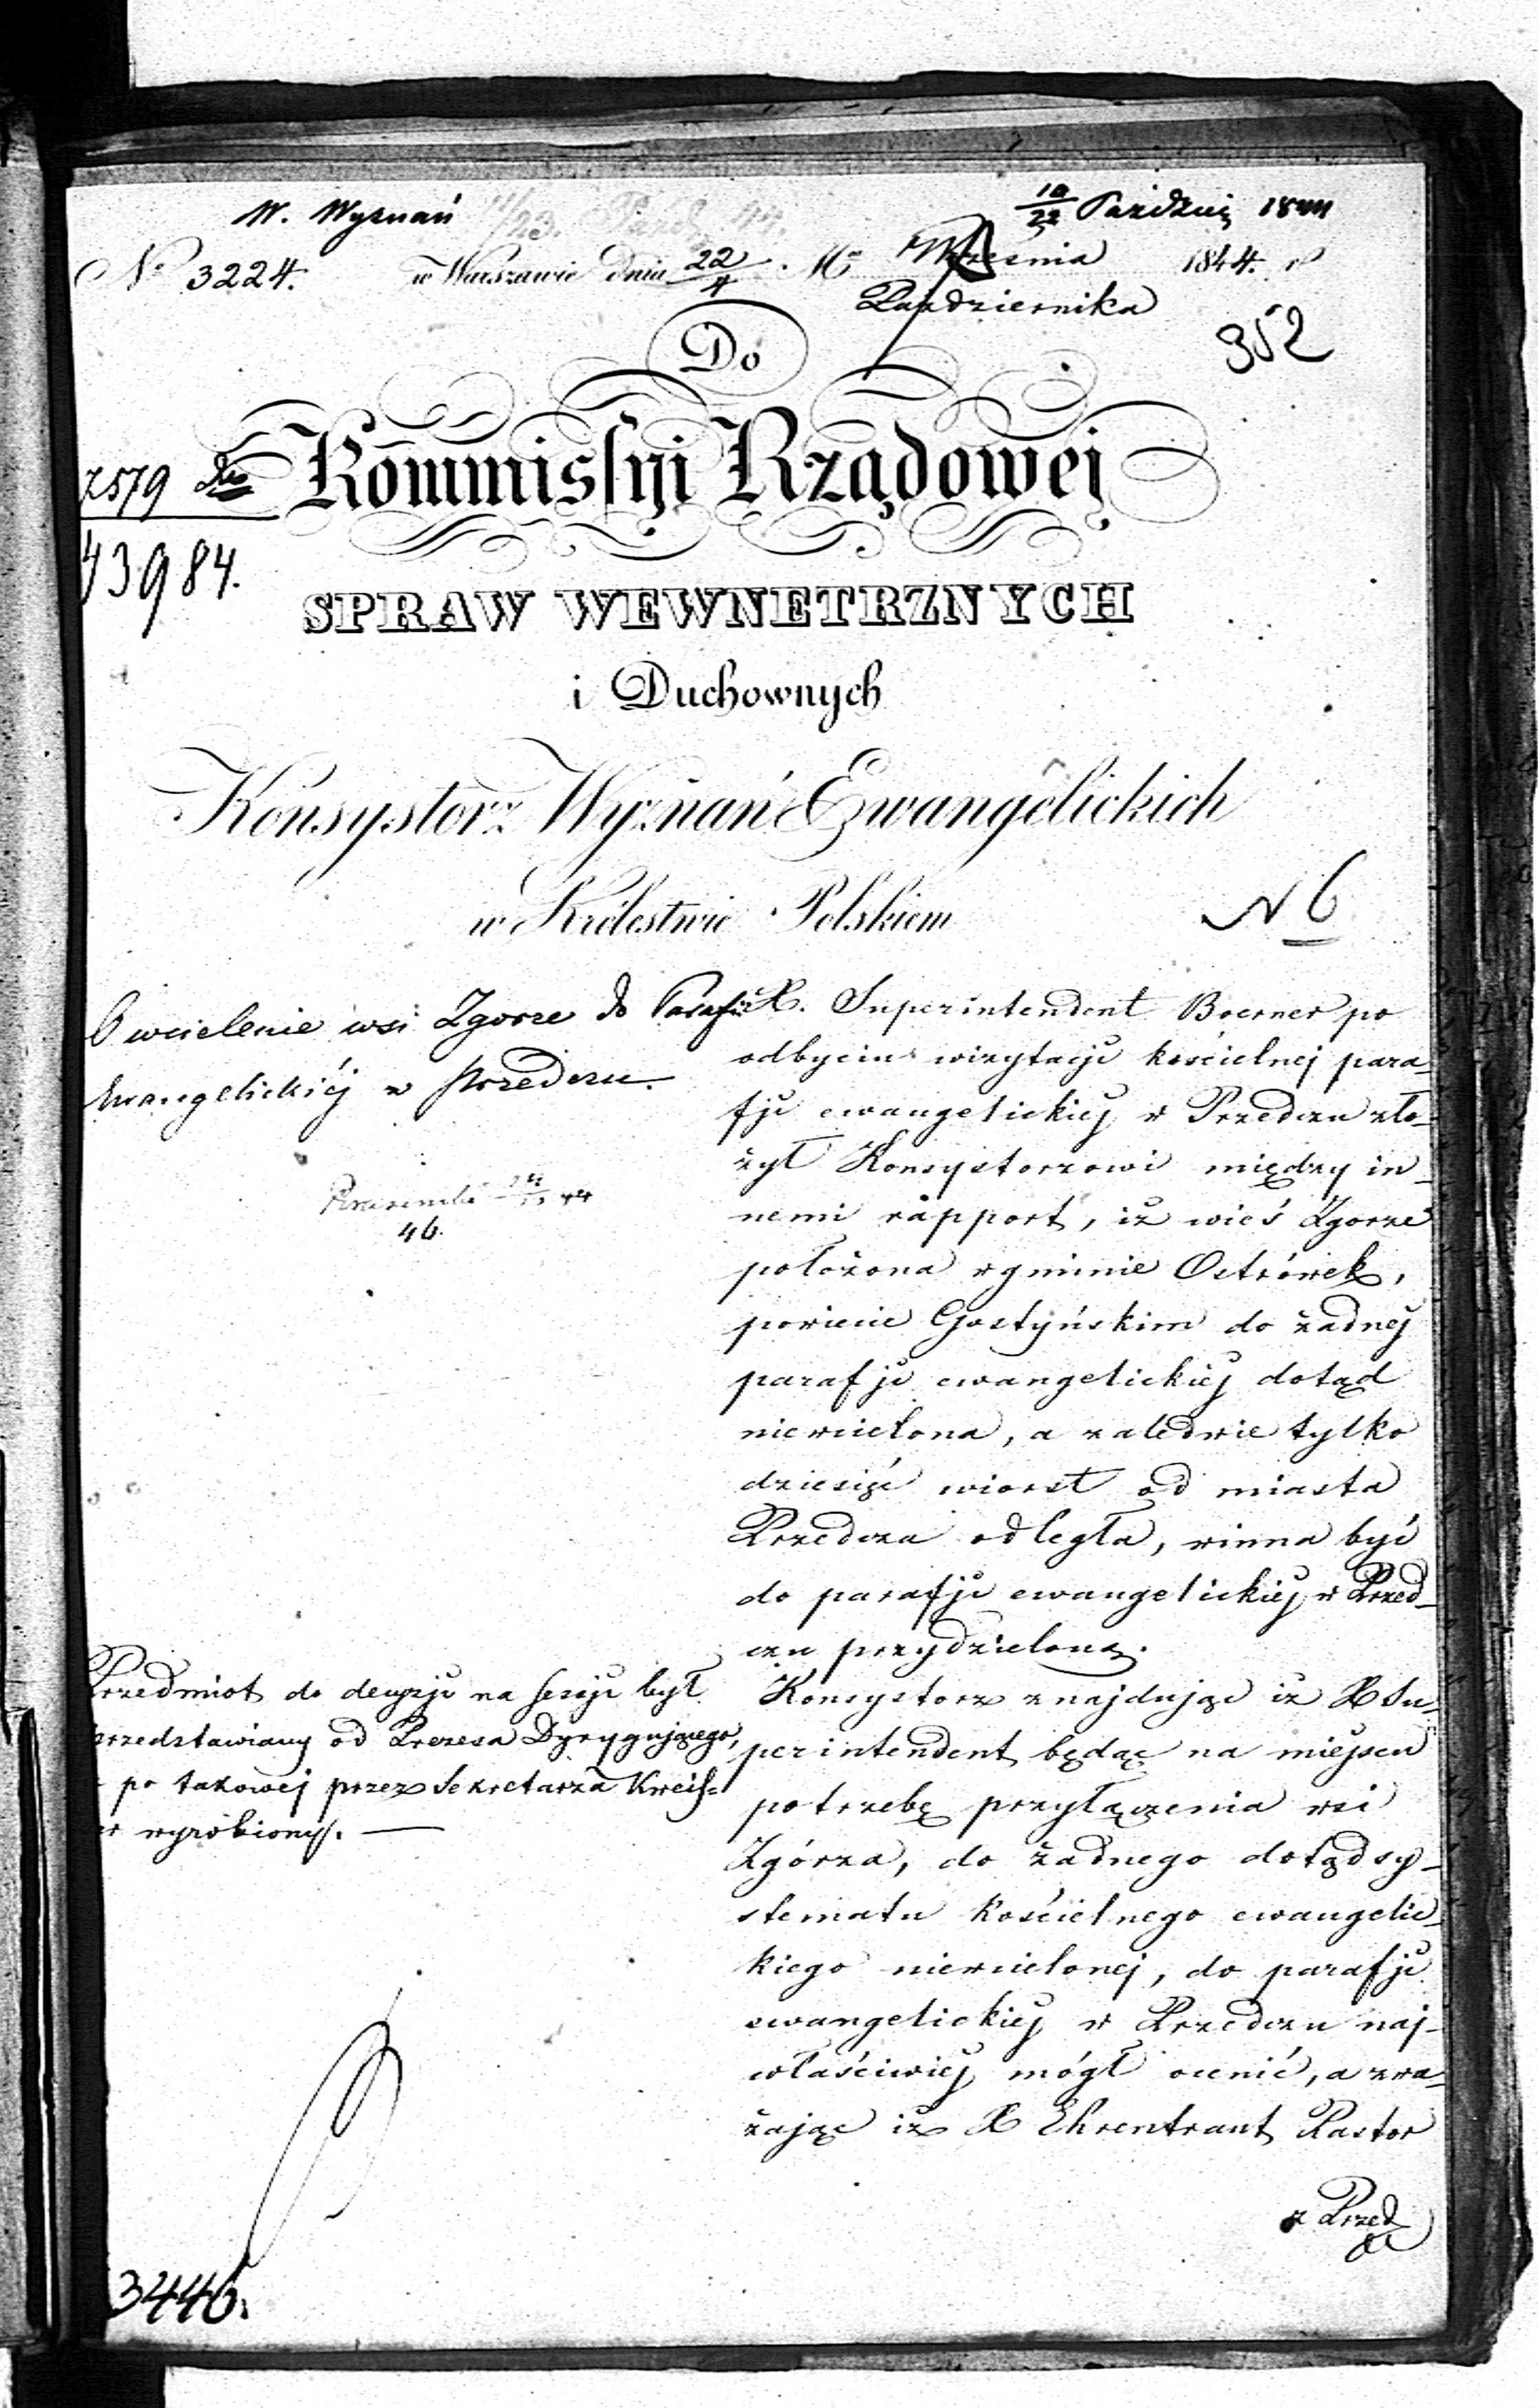 W. Wyznań
10/22 Paździer 1844
№ 3224. w Warszawie dnia 22/4 Mca Września 1844. r
Października
352
Do
Kommissyi Rządowej
7579
43984.
SPRAW WEWNETRZNYCH
i Duchownych
Konsystorz Wyznań Ewangelickich
w Królestwie Polskiem
N 6
O wcielenie wsi Zgorze do Parafii
Ewangelickiéj w Przedczu.
46.
X. Superintendent Boerner po
odbyciu wizytacji kościelnej para-
fji ewangelickiej w Przedczu zło-
żył Konsystorzowi między in-
nemi rapport, iż wieś Zgorze
położona w gminie Ostrówek,
powiecie Gostyńskim do żadnej
parafji ewangelickiej dotąd
niewcielona, a zaledwie tylko
dziesięć wiorst od miasta
Przedcza odległa, winna być
do parafji ewangelickiej w Przed-
czu przydzieloną.
Przedmiot do decyzji na sessji był
przedstawiany od Prezesa Dyrygującego,
po takowej przez Sekretarza
wyrobiony. —
Konsystorz znajdując iż X Su-
perintendent będąc na miejscu
potrzebę przyłączenia wsi
Zgórza, do żadnego dotąd sy-
stematu kościelnego ewangelic-
kiego niewcielonej, do parafji
ewangelickiej w Przedczu naj-
właściwiej mógł ocenić, a zwa-
żając iż X Ehrentraut Pastor
z Przed
3446.